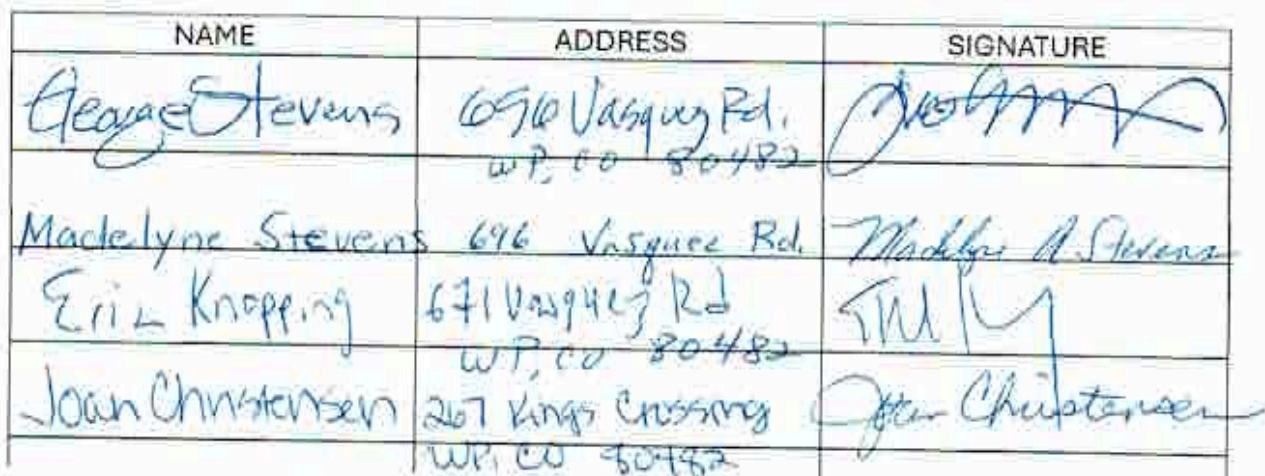 NAME ADDRESS SIGNATURE
George Stevens 696 Vasquez Rd.
WP, CO 80482
Madelyne Stevens 696 Vasquez Rd. Madelyne A Stevens
Eric Knopping 671 Vasquez Rd
WP, CO 80482
Joan Christensen 267 Kings Crossing Joan Christensen
WP, CO 80482